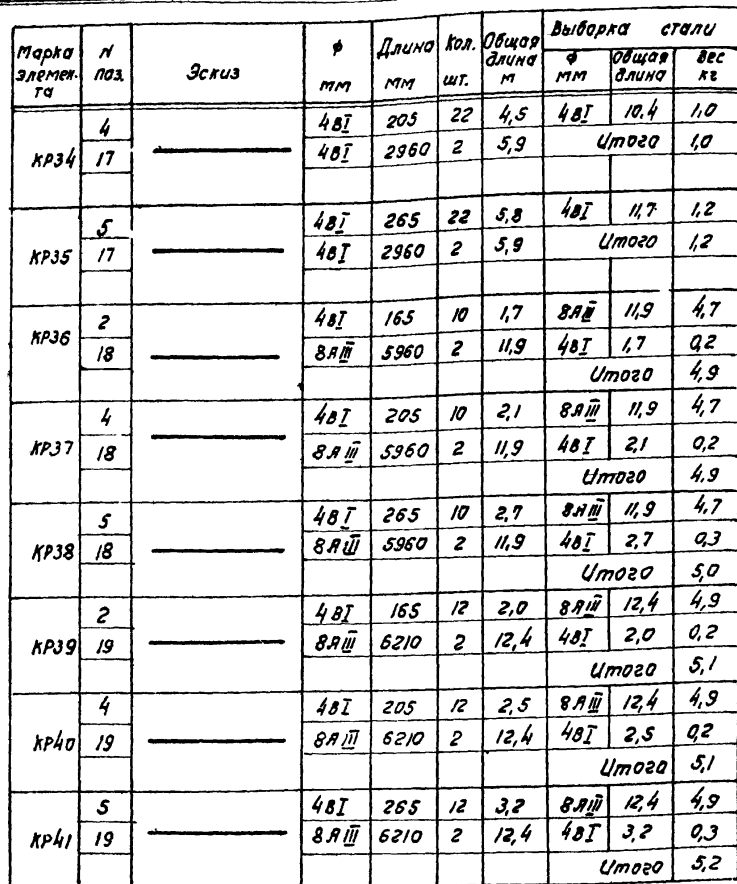 Марка элемен- та N поз. Эскиз ф мм Длина мм Кол. шт. Общая длина м Выборка стали ф мм Общая длина Вес кг
КР34 4 4ВI 205 22 4,5 4ВI 10.4 1,0
17 4ВI 2960 2 5,9 Итого 1,0
КР35 5 4ВI 265 22 5,8 4ВI 11,7 1,2
17 4ВI 2960 2 5,9 Итого 1,2
КР36 2 4ВI 165 10 1,7 8АIII 11,9 4,7
18 8АIII 5960 2 11,9 4ВI 1,7 0,2
Итого 4,9
КР37 4 4ВI 205 10 2,1 8АIII 11,9 4,7
18 8АIII 5960 2 11,9 4ВI 2,1 0,2
Итого 4.9
КР38 5 4ВI 265 10 2,7 8АIII 11,9 4,7
18 8АIII 5960 2 11,9 4ВI 2,7 0,3
Итого 5,0
КР39 2 4ВI 165 12 2,0 8АIII 12,4 4,9
19 8АIII 6210 2 12,4 4ВI 2,0 0,2
Итого 5,1
КР40 4 4ВI 205 12 2,5 8АIII 12,4 4,9
19 8АIII 6210 2 12,4 4ВI 2,5 0,2
Итого 5,1
КР41 5 4ВI 265 12 3,2 8АIII 12,4 4,9
19 8АIII 6210 2 12,4 4ВI 3,2 0,3
Итого 5,2